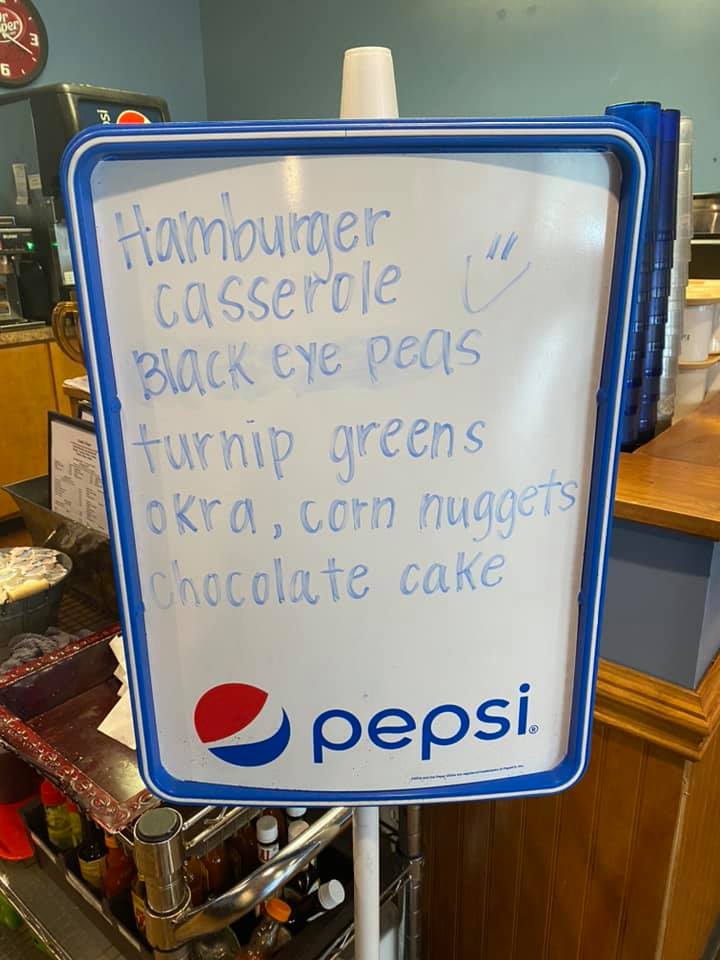 Hamburger
casserole
Black eye peas
turnip greens
okra, corn nuggets
chocolate cake
pepsi